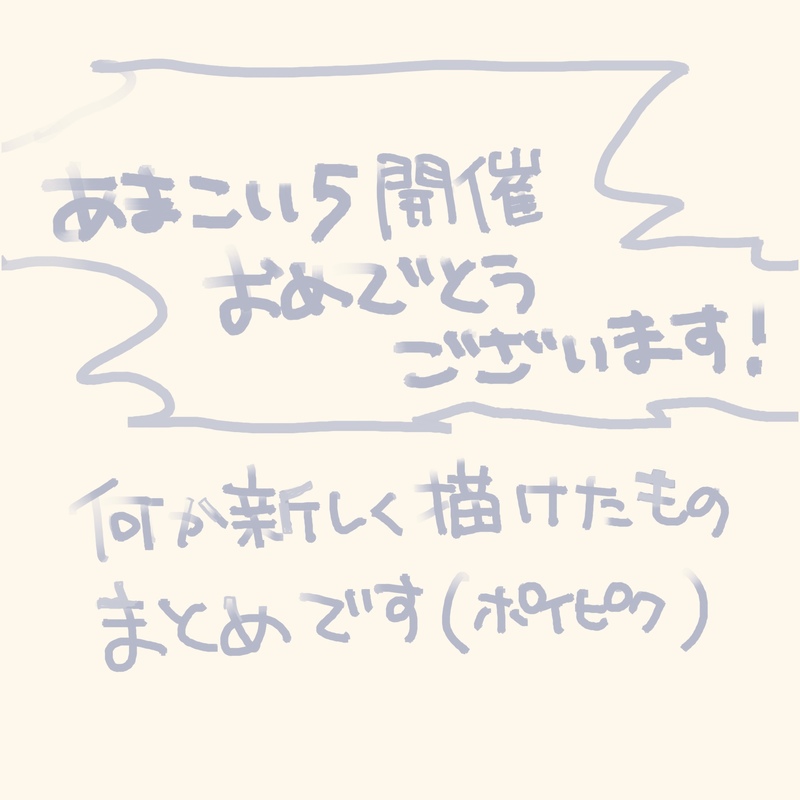 あまこい5開催
おめでとう
ございます!
何か新しく描けたもの
まとめです(ポイピク)